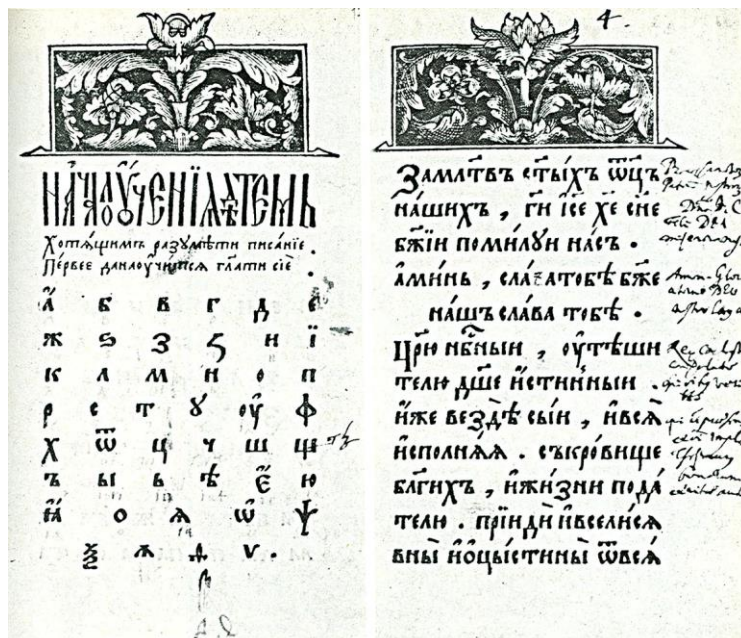 НАЧАЛО ꙊЧЕНЇѦ ДѢТЕМЪ
Хотѧщимъ разꙋмѣти писанїе .
Первее да наоучитсѧ гл҃ати сїѐ .
а҆ б в г д є
ж ѕ з ꙁ и ї
к л м н о п
р с т ꙋ оу҆ ф
х ѿ ц ч ш щ
ъ ы ь ѣ ѥ ю
ꙗ о ѧ ѡ ѱ
ѯ ѫ ѵ .
4.
За мл҃твъ ст҃ыхъ ѿц҃ъ
нашихъ , гн҃ і҆с҃е хе҃ сн҃е
бж҃їи помилꙋи на́съ .
а҆минь , сла́ва тобѣ бж҃е
на́шъ сла́ва тобѣ .
Цр҃ю нбⷭ҇ныи , оу҆тѣши
телю дш҃е и҆стин́ныи .
и҆же вездѣ сы́и , и҆всѧ̀
и҆сполнѧ́ѧ . съкро́вище
бл҃ги́хъ , и҆жи́зни пода́
телю . прїидѝ и҆всели́сѧ
вны̀ и҆ѡ҆цы́стины̀ ѿвсѧ́